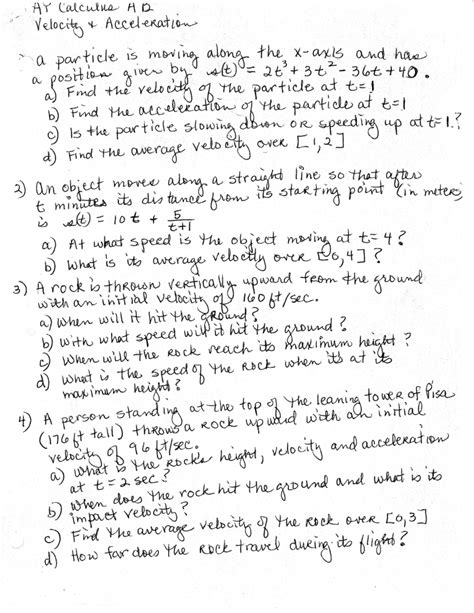 AP Calculus AB
Velocity & Acceleration
a particle is moving along the x-axis and has
a position given by s(t) = 2t³ + 3t² - 36t + 40.
a) Find the velocity of the particle at t=1
b) Find the acceleration of the particle at t=1
c) Is the particle slowing down or speeding up at t=1?
d) Find the average velocity over [1,2]
2) An object moves along a straight line so that after
t minutes its distance from its starting point (in meters)
is s(t) = 10t + 5/(t+1)
a) At what speed is the object moving at t=4?
b) What is its average velocity over [0,4]?
3) A rock is thrown vertically upward from the ground
with an initial velocity of 160 ft/sec.
a) When will it hit the ground?
b) with what speed will it hit the ground?
c) When will the rock reach its maximum height?
d) What is the speed of the rock when its at its
maximum height?
4) A person standing at the top of the leaning tower of Pisa
(176 ft tall) throws a rock upward with an initial
velocity of 96 ft/sec.
a) What is the rocks height, velocity and acceleration
at t=2 sec?
b) When does the rock hit the ground and what is its
impact velocity?
c) Find the average velocity of the rock over [0,3]
d) How far does the rock travel during its flight?